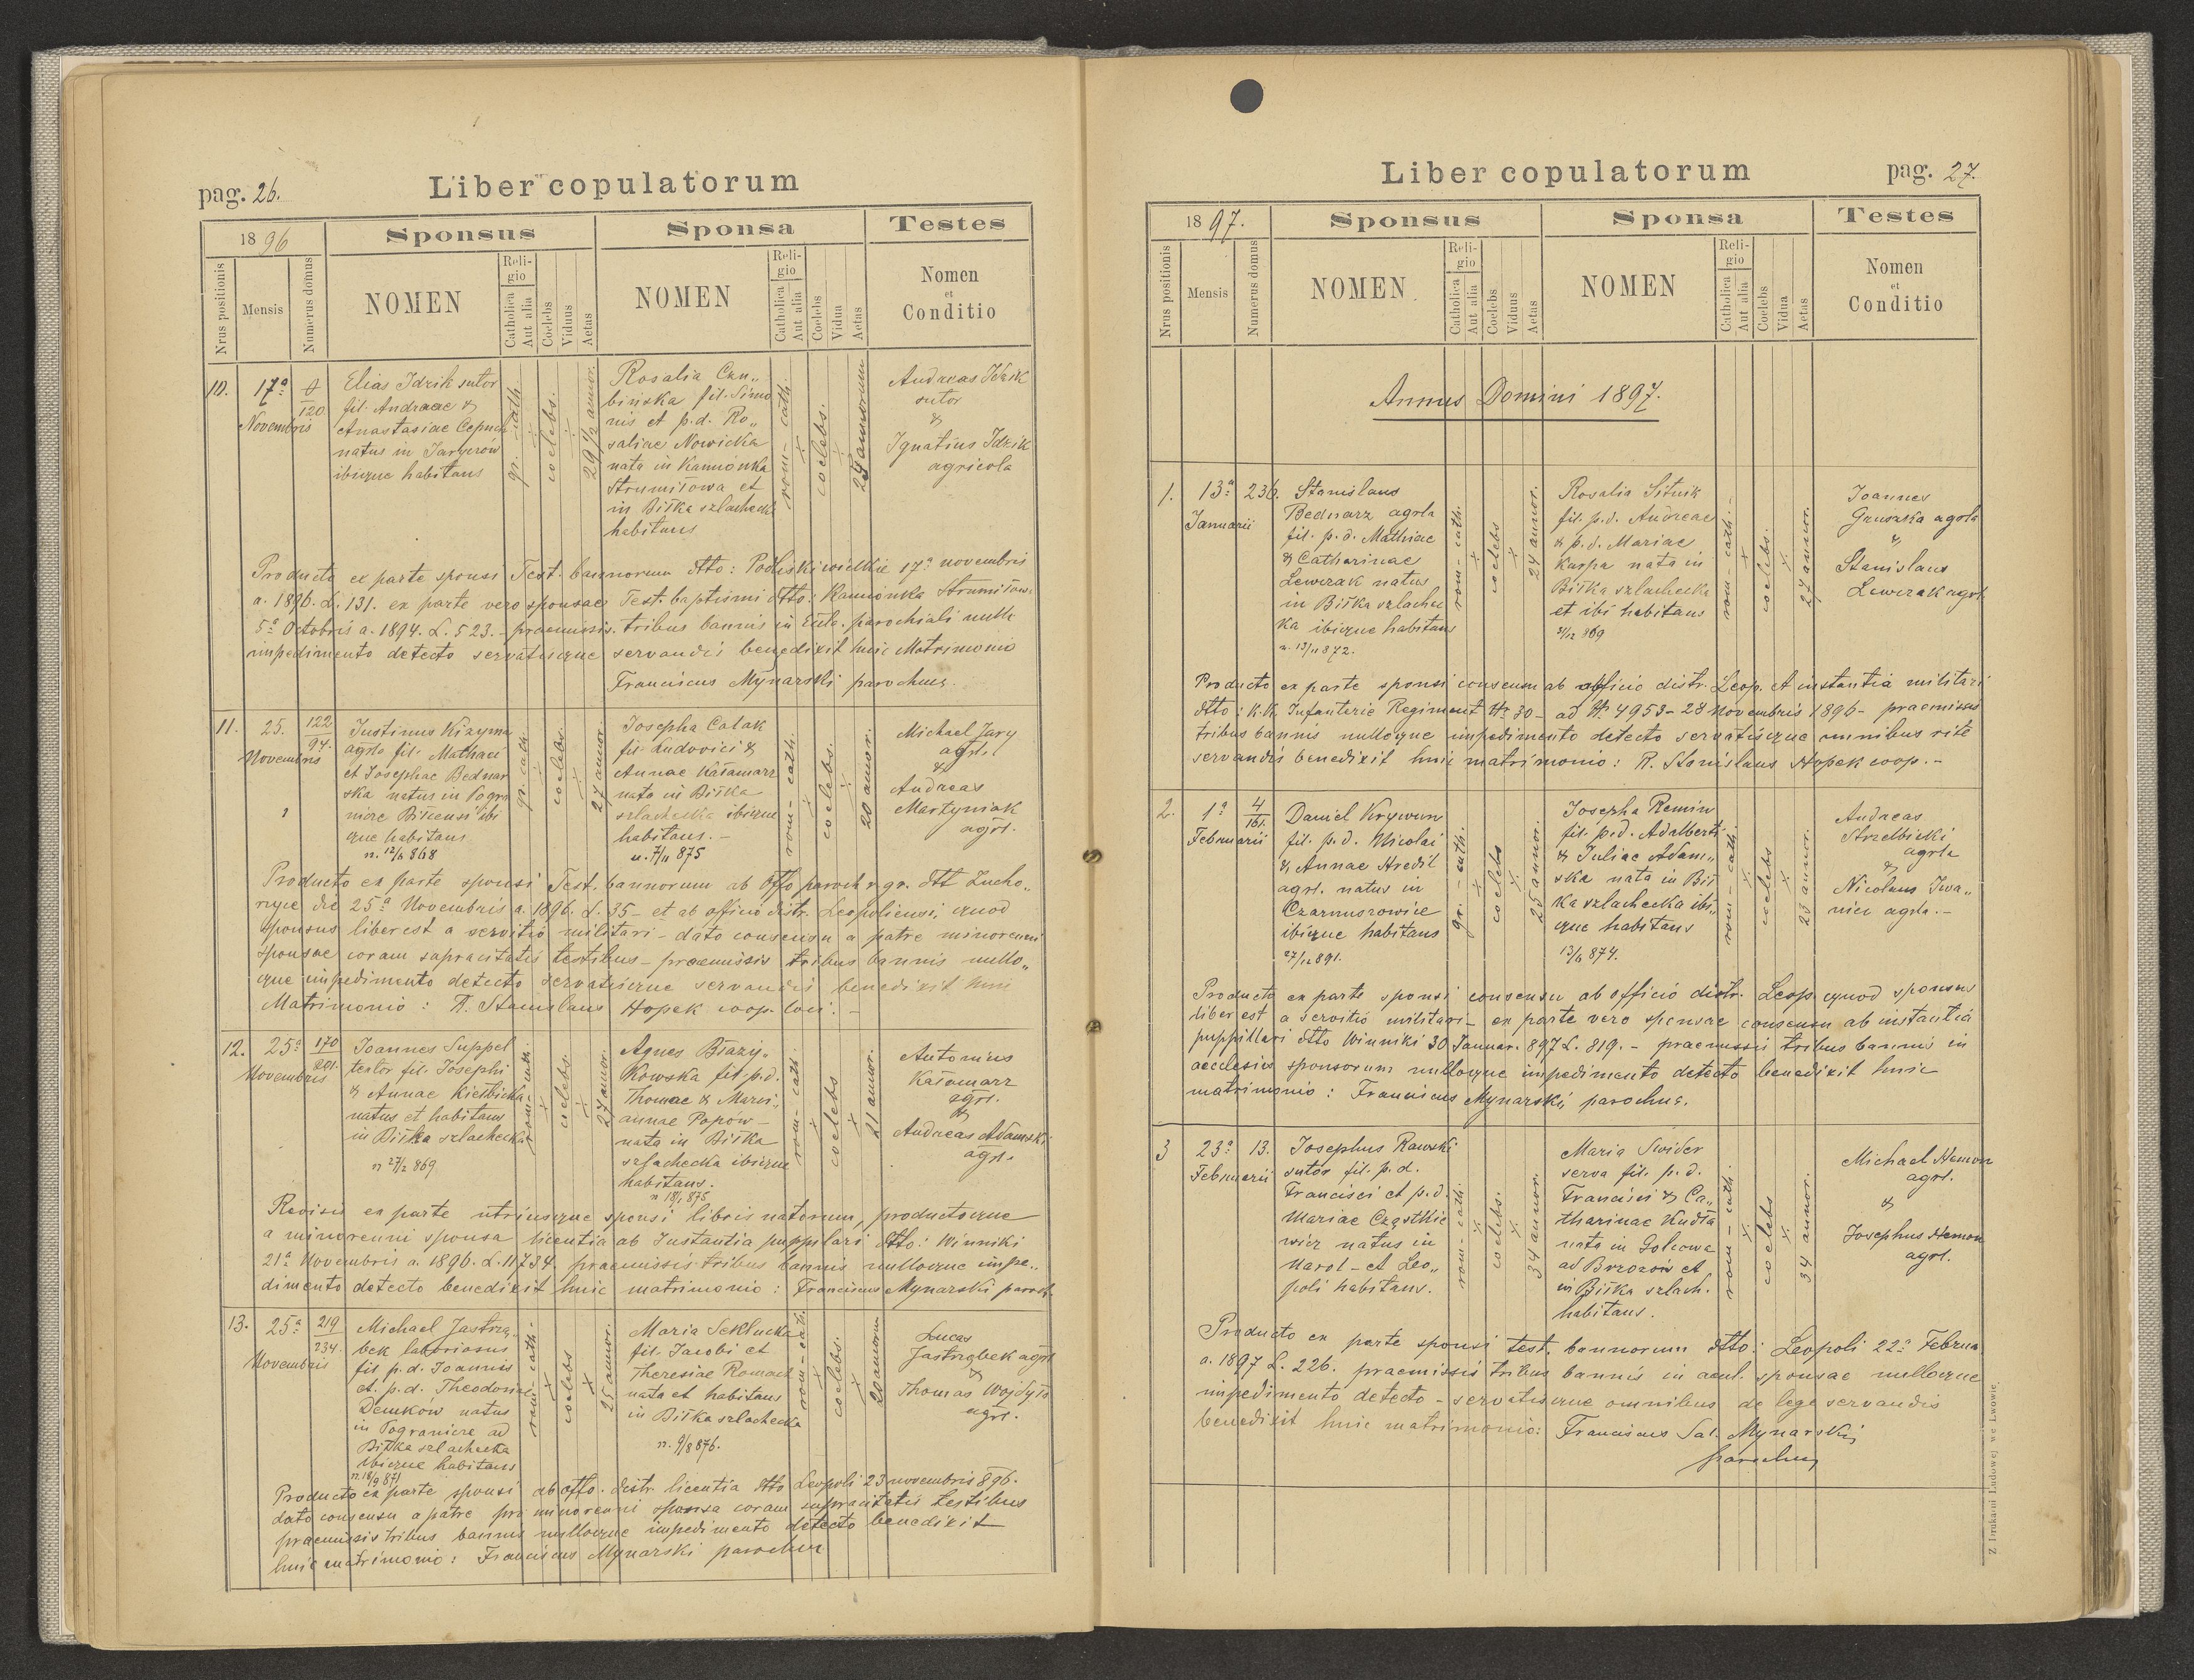 pag. 26.
Liber copulatorum
1896
Sponsus
Sponsa
Testes
Nrus positionis
Mensis
Numerus domus
NOMEN
Religio
Catholica
Aut alia
Coelebs
Viduus
Aetas
NOMEN
Religio
Catholica
Aut alia
Coelebs
Vidua
Aetas
Nomen
et
Conditio
10.
17ª
Novembris
120
Elias Idzik sutor
fil. Andreae &
Anastasiae
natus in Jaryczów
ibique habitans
gr. - cath.
coelebs.
29 1/2 annor.
Rosalia Czu„
bińska fil. Simo
nis et p.d. Ro„
saliae Nowicka
nata in Kamionka
Strumiłowa et
in Biłka szlachecka
habitans
rom - cath.
coelebs.
24 annorum
Andreas Idzik
sutor
&
Ignatius Idzik
agricola
Producto ex parte sponsi Test. bannorum dtto: Podliski wielkie 17ª novembris
a. 1896. L. 131. ex parte vero sponsae Test. baptismi dtto: Kamionka Strumiłowa
5ª Octobris a. 1894. L. 523. - praemissis tribus bannis in Eccle. parochiali nullo
impedimento detecto servatisque servandis benedixit huic Matrimonio
Franciscus Mynarski parochus.
11.
25.
Novembris
122
94.
Justinus Kizyma
agrla fil. Mathaei
et Josephae Bednar
ska natus in Pogra
nicze Biłcensi ibi
que habitans
n. 12/6 868
gr. cath.
coelebs.
27 annor.
Josepha Calak
fil. Ludovici &
Annae Kałamarz
nata in Biłka
szlachecka ibique
habitans. -
n. 7/11 875
rom - cath.
coelebs.
20 annor.
Michael Jary
agrl.
&
Andreas
Martyniak
agrl.
Producto ex parte sponsi Test. bannorum ab Offo paroch r. gr. dtt Zucho„
rzyce die 25ª Novembris a. 1896. L. 35 - et ab officio distr. Leopoliensi, quod
sponsus liber est a servitio militari - dato consensu a patre minorenni
sponsae coram supracitatis testibus - praemissis tribus bannis nullo„
que impedimento detecto servatisque servandis benedixit huic
Matrimonio: R. Stanislaus Hopek coop. loci. -
12.
25ª
Novembris
170
201.
Joannes Suppel
textor fil. Josephi
& Annae Kiełbicka
natus et habitans
in Biłka szlachecka
n 27/2 869
rom - cath.
coelebs.
27 annor.
Agnes Błazy„
kowska fil. p.d.
Thomae & Mari„
annae Popów -
nata in Biłka
szlachecka ibique
habitans.
n 18/1 875
rom - cath.
coelebs
21 annor.
Antonius
Kałamarz
agrl.
&
Andreas Adamski
agrl.
Revisis ex parte utriusque sponsi libris natorum, productoque
a minorenni sponsa licentia ab Instantia puppilari dtto: Winniki
21ª Novembris a. 1896. L. 11734. praemissis tribus bannis nulloque impe„
dimento detecto benedixit huic matrimonio: Franciscus Mynarski paroch.
13.
25ª
Novembris
219
234.
Michael Jastrzę„
bek laboriosus
fil p.d. Joannis
et. p.d. Theodoriae
Demkow natus
in Pogranicze ad
Biłka szlachecka
ibique habitans
n. 18/9 871
rom - cath -
coelebs
25 annor.
Maria Seklucka
fil. Jacobi et
Theresiae Romach
nata et habitans
in Biłka szlachecka
n. 9/8 876.
rom - cath.
coelebs.
20 annorum
Lucas
Jastrzębek agrl
&
Thomas Wojdyła
agrl.
Producto ex parte sponsi ab offo. distr. licentia dtto Leopoli 23 novembris 896.
dato consensu a patre pro minorenni sponsa coram supracitatis testibus
praemissis tribus bannis nulloque impedimento detecto benedixit
huic matrimonio: Franciscus Mynarski parochus
Liber copulatorum
pag. 27.
1897.
Sponsus
Sponsa
Testes
Nrus positionis
Mensis
Numerus domus
NOMEN
Religio
Catholica
Aut alia
Coelebs
Viduus
Aetas
NOMEN
Religio
Catholica
Aut alia
Coelebs
Vidua
Aetas
Nomen
et
Conditio
Annus Domini 1897.
1.
13ª
Januarii
236.
Stanislaus
Bednarz agrla
fil. p. d. Mathiae
& Catharinae
Lewczak natus
in Biłka szlachec
ka ibique habitans
n. 13/11 872.
rom - cath.
coelebs
24 annor.
Rosalia Sitnik
fil. p.d. Andreae
& p.d. Mariae
Karpa nata in
Biłka szlachecka
et ibi habitans
2/12 869
rom - cath -
coelebs.
27 annor.
Joannes
Gruszka agrla
&
Stanislaus
Lewczak agrl.
Producto ex parte sponsi consensu ab officio distr. Leop. et instantia militari
dtto: K.K. Infanterie Regiment Nr 30 - ad N. 4953 - 28 Novembris 1896 - praemissis
tribus bannis nulloque impedimento detecto servatisque omnibus rite
servandis benedixit huic matrimonio: R. Stanislaus Hopek coop. -
2.
1ª
Februarii
4
161.
Daniel Krywun
fil. p.d. Nicolai
& Annae Hredil
agrl. natus in
Czarnuszowice
ibique habitans
27/12 891.
gr. - cath.
coelebs
25 annor.
Josepha Remin
fil. p.d. Adalberti
& Juliae Adam„
ska nata in Bił
ka szlachecka ibi„
que habitans
13/6 874.
rom - cath.
coelebs
23 annor.
Andreas
Strzelbicki
agrla
&
Nicolaus Iwa„
niec agrla. -
Producto ex parte sponsi consensu ab officio distr. Leop. quod sponsus
liber est a servitio militari - ex parte vero sponsae consensu ab instantia
puppillari dtto Winniki 30 Januar. 897 L. 819. - praemissis tribus bannis in
aecclesiis sponsorum nulloque impedimento detecto benedixit huic
matrimonio: Franciscus Mynarski, parochus.
3
23ª
Februarii
13.
Josephus Rawski
sutor fil. p.d.
Francisci et p.d.
Mariae Cząstkie
wicz natus in
Narol - et Leo„
poli habitans.
rom - cath.
coelebs.
34 annor.
Maria Swider
serva fil. p. d.
Francisci & Ca„
tharinae Kudła
nata in Golcowa
ad Brzozów et
in Biłka szlach.
habitans.
rom - cath.
coelebs
34 annor.
Michael Hemon
agrl.
&
Josephus Hemon
agrl.
Producto ex parte sponsi test. bannorum dtto: Leopoli 22ª Februa.
a. 1897 L. 226. praemissis tribus bannis in accl. sponsae nulloque
impedimento detecto - servatisque omnibus de lege servandis
benedixit huic matrimonio: Franciscus Sal. Mynarski,
parochus
Z Drukarni Ludowej we Lwowie.